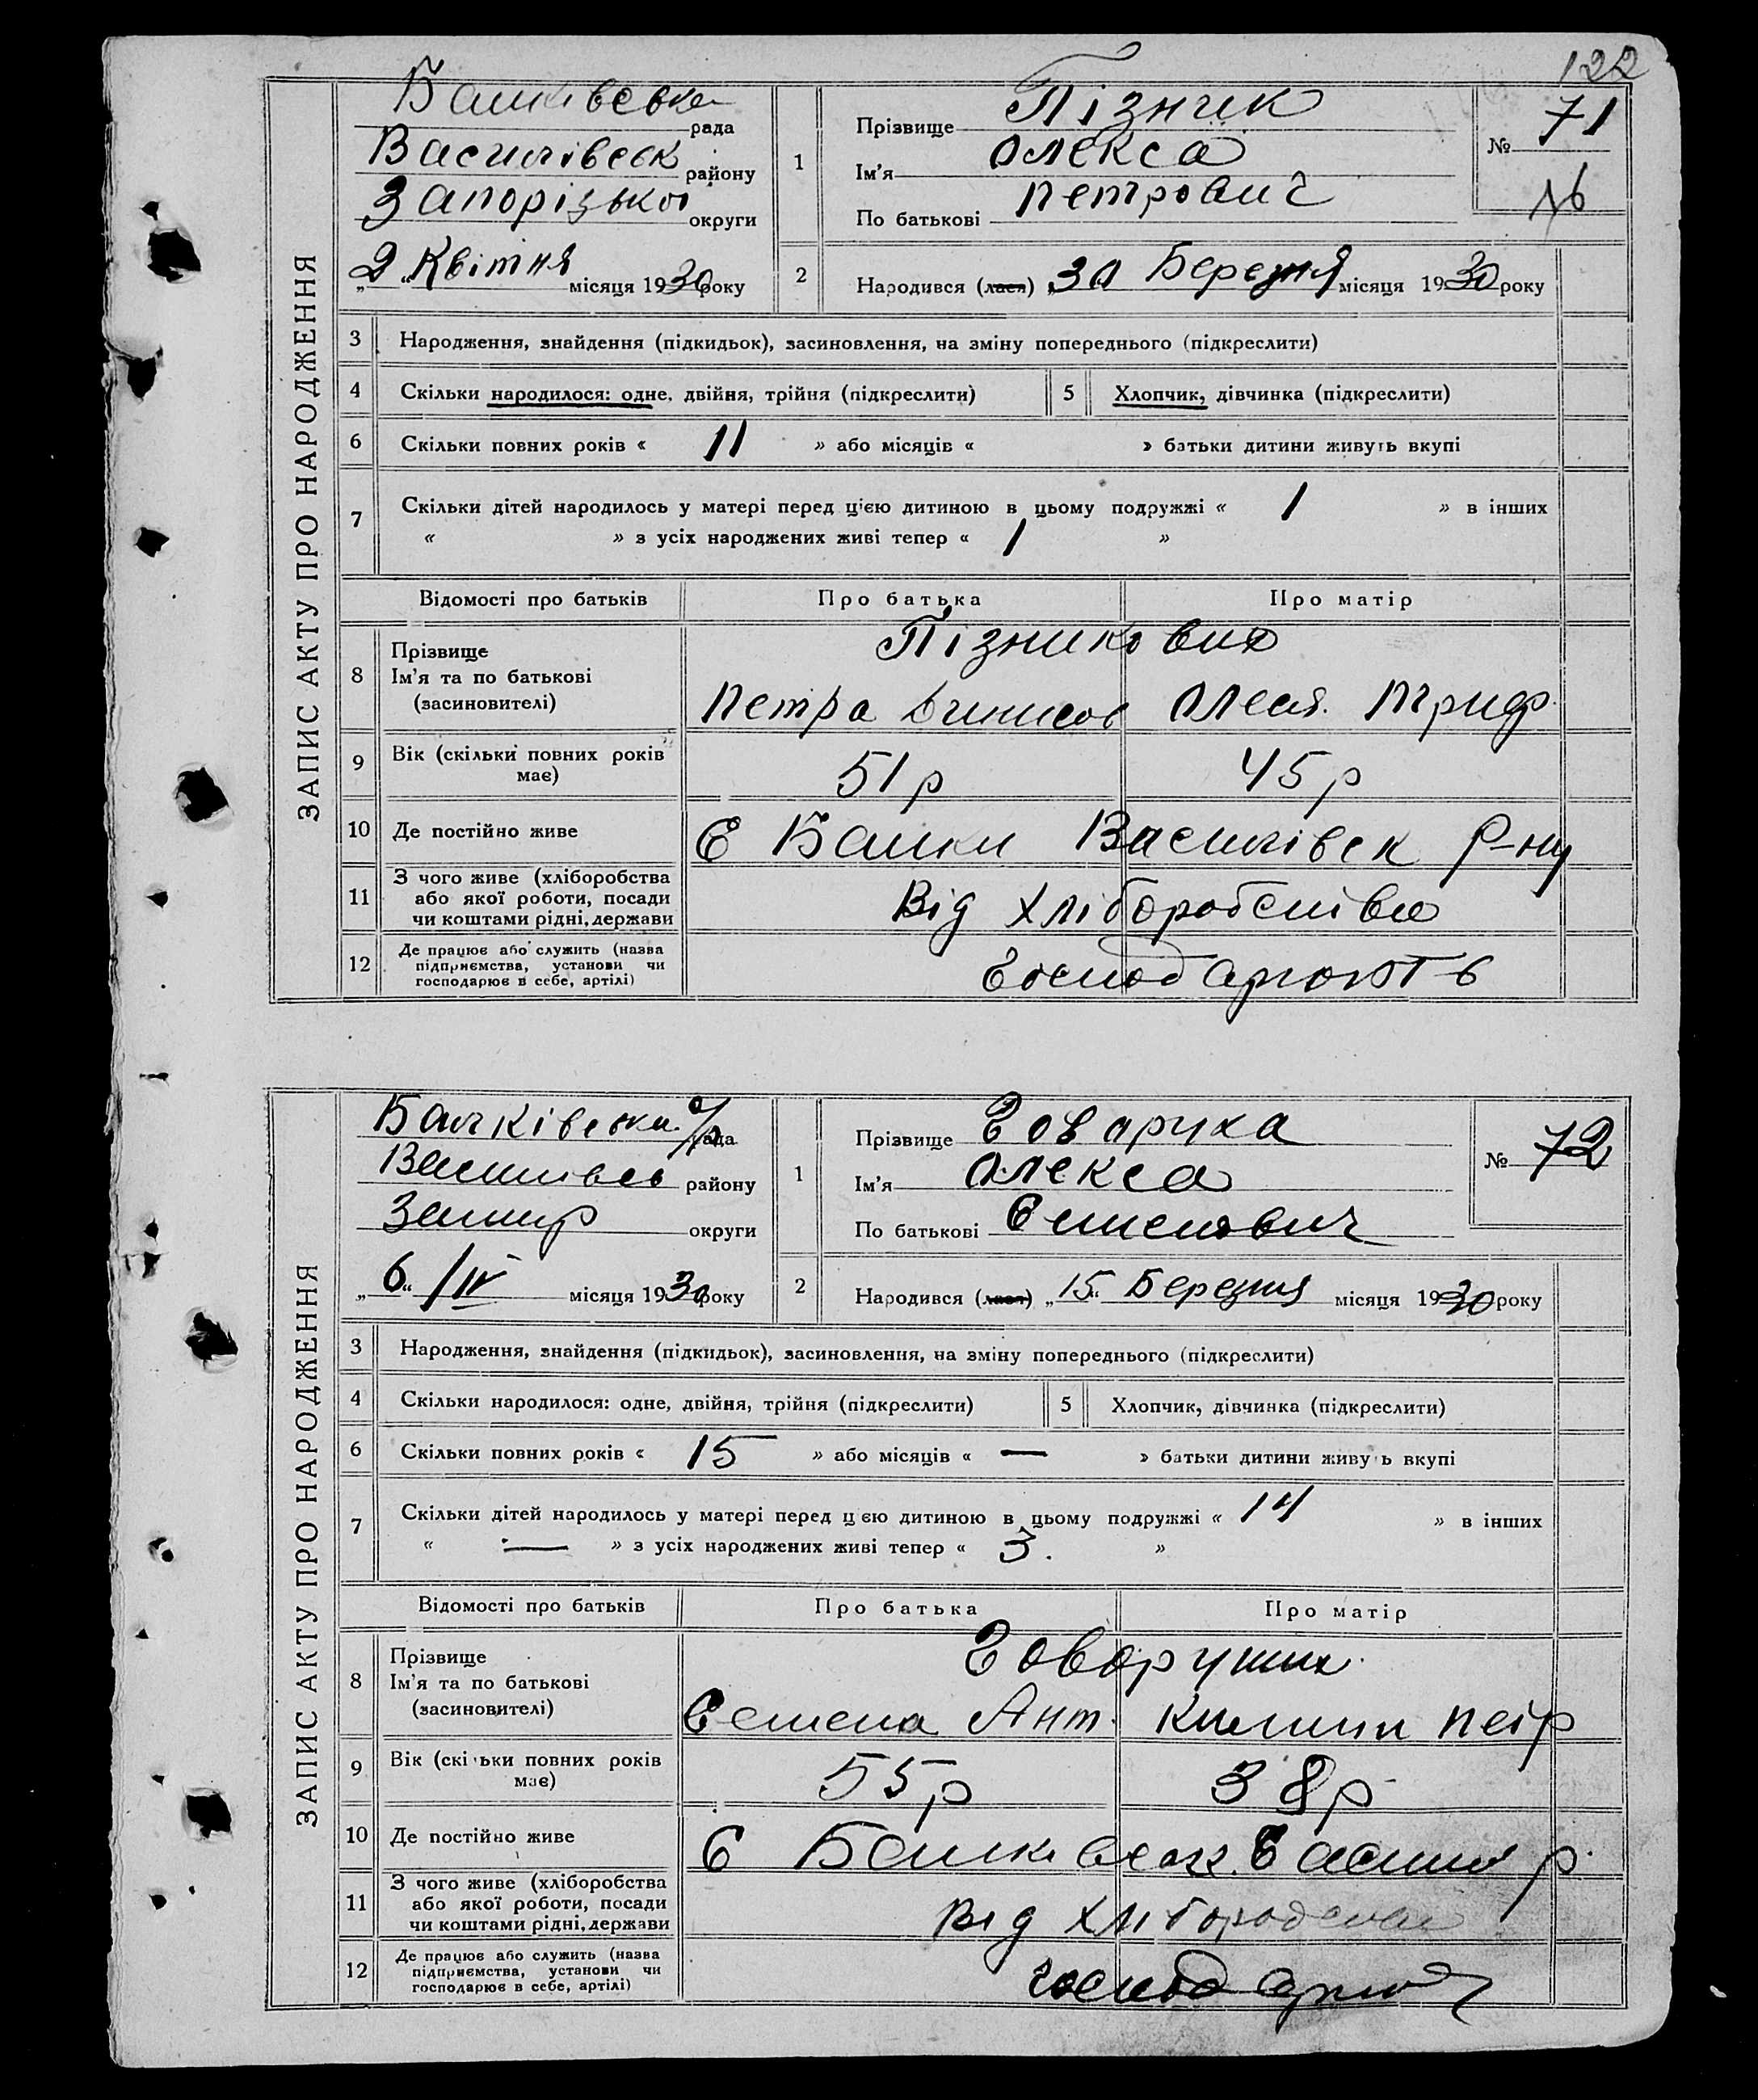 122
Балківська рада
Василівськ району
Запорізької округи
„2“ Квітня місяця 1930 року
1
Прізвище Пізник
Ім'я Олекса
По батькові Петрович
№ 71
2
Народився (лася) „30 Березня місяця 1930 року
ЗАПИС АКТУ ПРО НАРОДЖЕННЯ
3 Народження, знайдення (підкидьок), засиновлення, на зміну попереднього (підкреслити)
4 Скільки народилося: одне, двійня, трійня (підкреслити) 5 Хлопчик, дівчинка (підкреслити)
6 Скільки повних років « 11 » або місяців « » батьки дитини живуть вкупі
7 Скільки дітей народилось у матері перед цією дитиною в цьому подружжі « 1 » в інших
« » з усіх народжених живі тепер « 1 »
Відомості про батьків Про батька Про матір
8 Прізвище
Ім'я та по батькові
(засиновителі)
Пізникових
Петра Олеся. Триф.
9 Вік (скільки повних років
має)
51 р 45 р
10 Де постійно живе С Балки Василівск р-ну
11 З чого живе (хліборобства
або якої роботи, посади
чи коштами рідні, держави
Від хліборобства
12 Де працює або служить (назва
підприємства, установи чи
господарює в себе, артілі)
Господарюють
Балківська с/рада
району
Запор округи
„6“ /IV місяця 1930 року
1
Прізвище Говоруха
Ім'я Олекса
По батькові Семенович
№ 72
2
Народився (лася) „15“ Березня місяця 1930 року
ЗАПИС АКТУ ПРО НАРОДЖЕННЯ
3 Народження, знайдення (підкидьок), засиновлення, на зміну попереднього (підкреслити)
4 Скільки народилося: одне, двійня, трійня (підкреслити) 5 Хлопчик, дівчинка (підкреслити)
6 Скільки повних років « 15 » або місяців « — » батьки дитини живуть вкупі
7 Скільки дітей народилось у матері перед цією дитиною в цьому подружжі « 14 » в інших
« — » з усіх народжених живі тепер « 3. »
Відомості про батьків Про батька Про матір
8 Прізвище
Ім'я та по батькові
(засиновителі)
Говорущих
Семена Ант. Килини Петр
9 Вік (скільки повних років
має)
55 р 38 р
10 Де постійно живе С р.
11 З чого живе (хліборобства
або якої роботи, посади
чи коштами рідні, держави
Від хліборобства
12 Де працює або служить (назва
підприємства, установи чи
господарює в себе, артілі)